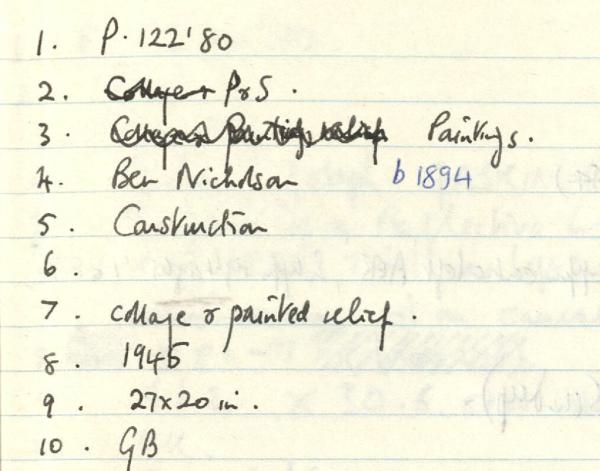 1. P.122'80
2. Collage + P & S.
3. Collage & Painting relief Paintings.
4. Ben Nicholson b 1894
5. Construction
6.
7. collage & painted relief.
8. 1945
9. 27x20 in.
10. GB